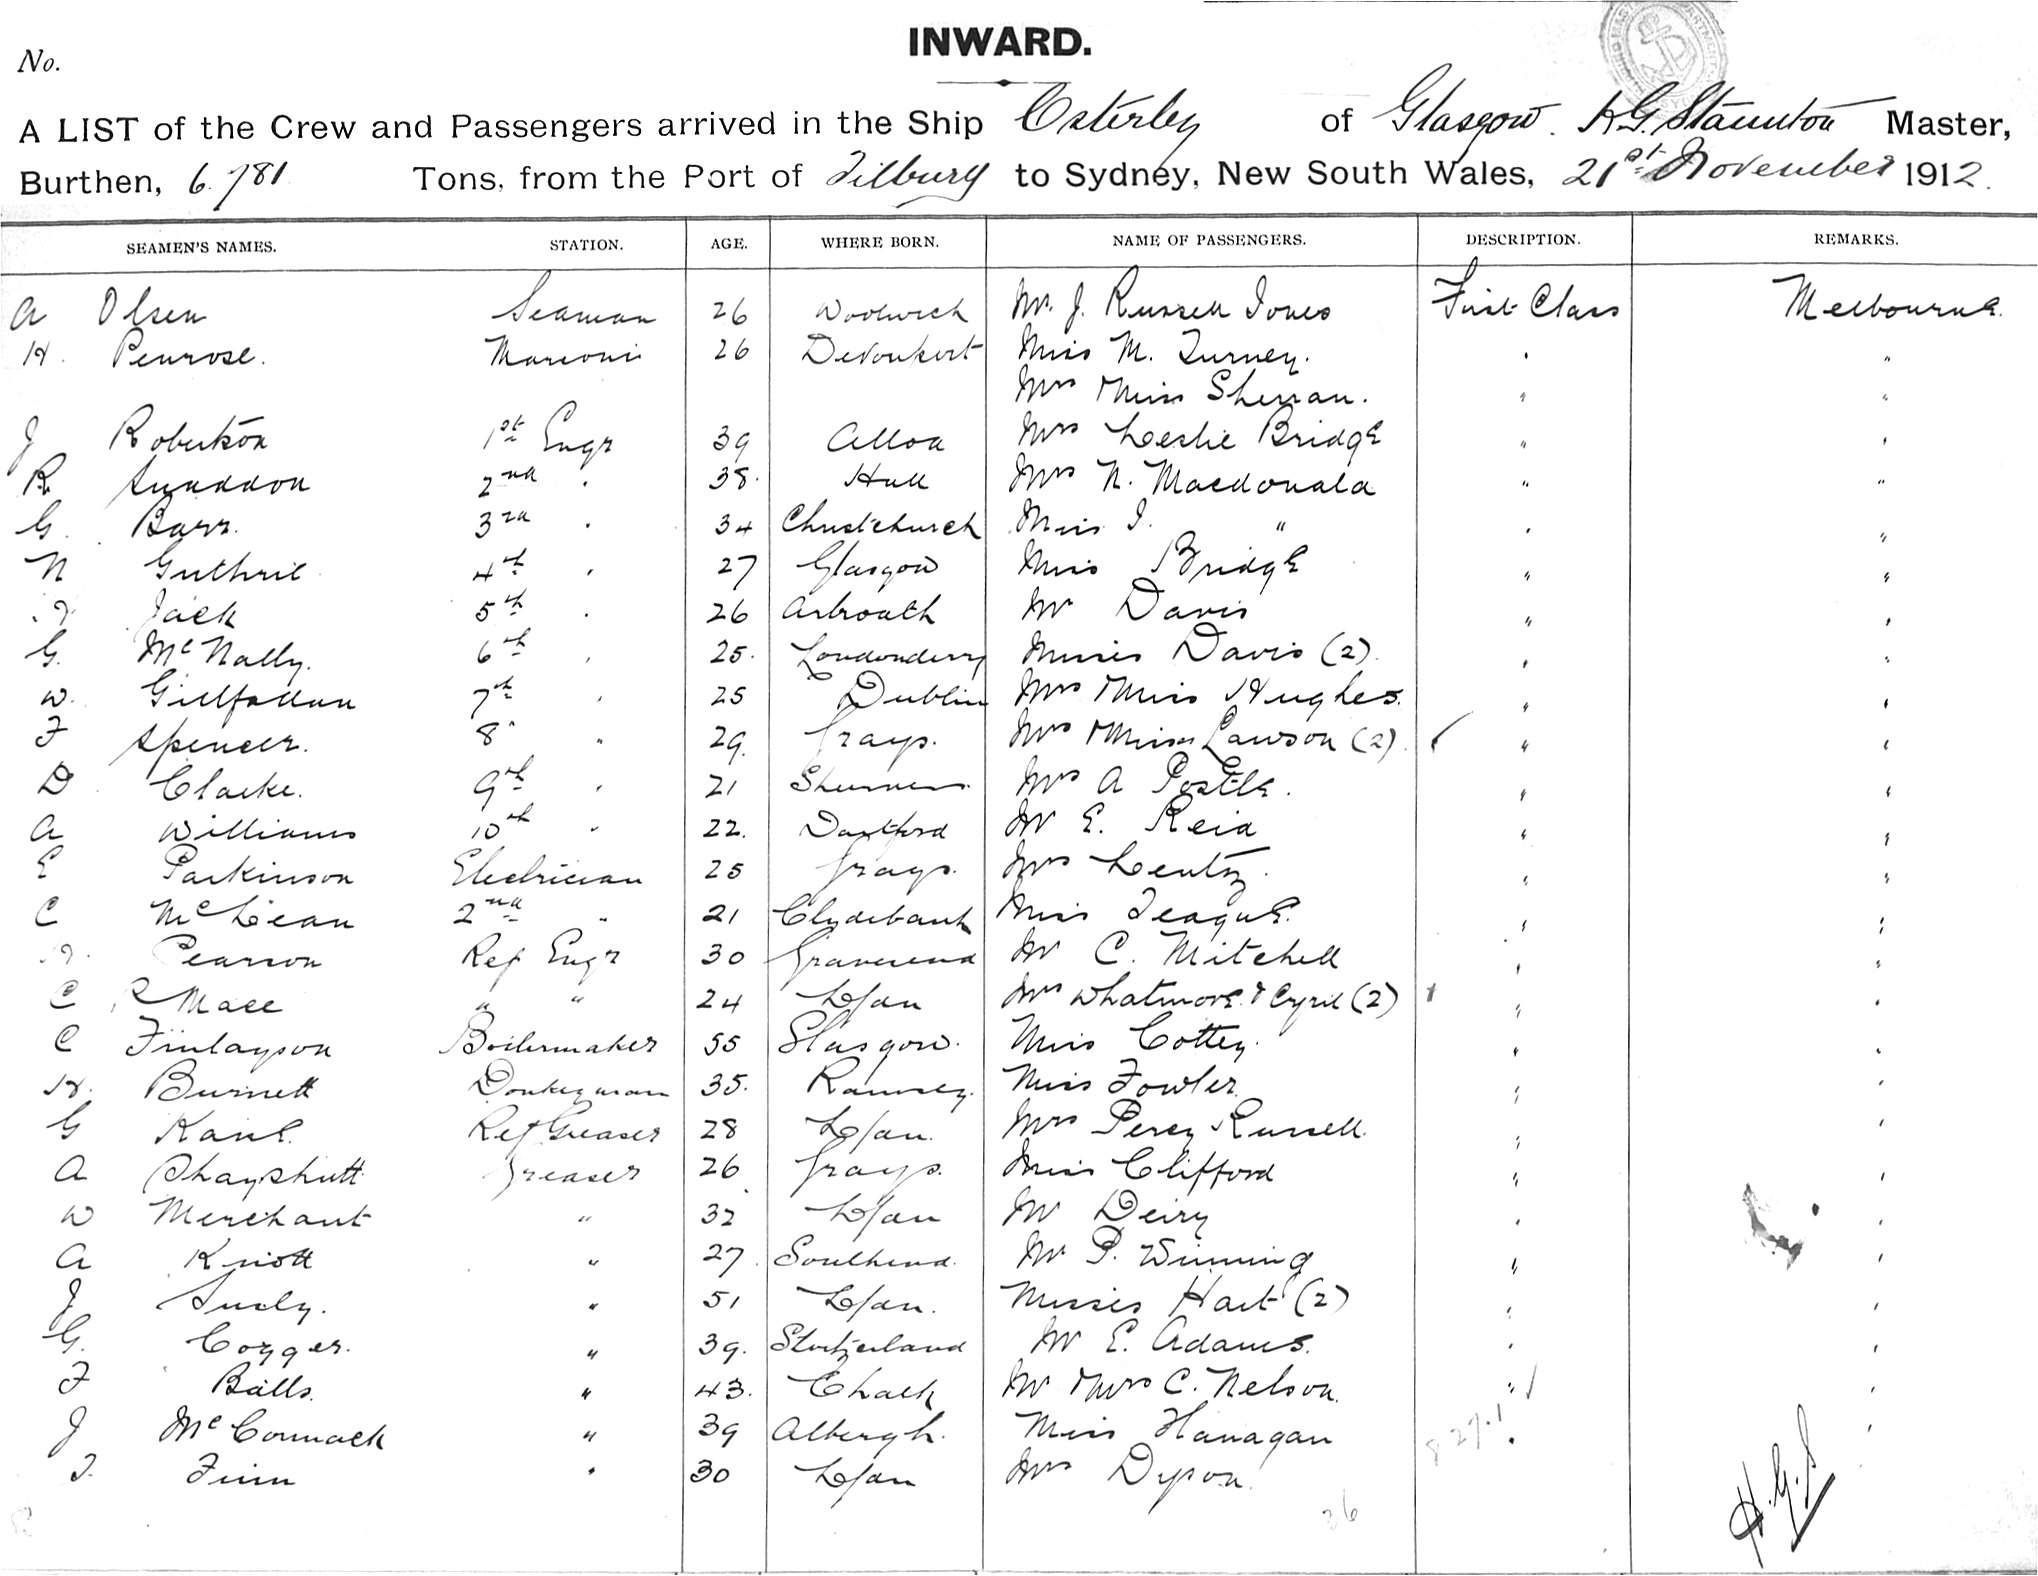 No.
INWARD.
A LIST of the Crew and Passengers arrived in the Ship Osterley of Glasgow. H.G. Staunton Master,
Burthen, 6.781 Tons, from the Port of Tilbury to Sydney, New South Wales, 21st November 1912.
SEAMEN'S NAMES. STATION. AGE. WHERE BORN. NAME OF PASSENGERS. DESCRIPTION. REMARKS.
A Olsen Seaman 26 Woolwich Mr. J. Russell Jones First Class Melbourne.
H. Penrose. Marconi 26 Devonport Miss M. Turney. " "
Mrs & Miss Sherran. " "
J Robertson 1st Engr 39 Alloa Mrs Leslie Bridge " "
R Snaddon 2nd " 38. Hull Mrs N. Macdonald " "
G. Barr. 3rd " 34 Christchurch Miss I. " " "
N Guthrie 4th " 27 Glasgow Miss Bridge " "
Jack 5th " 26 Arbroath Mr Davis " "
G. McNally. 6th " 25. Londonderry Misses Davis (2) " "
W. Gillfallan 7th " 25 Dublin Mrs & Miss Hughes. " "
F Spencer. 8" " 29. Grays. Mrs & Miss Lawson (2) " "
D Clarke. 9th " 21 Sheerness. Mrs A Postle. " "
A Williams 10th " 22. Dartford Mr E. Reid " "
E Parkinson Electrician 25 Grays. Mrs Lentz. " "
C McLean 2nd " 21 Clydebank Miss Teague. " "
Pearson Ref Engr 30 Gravesend Mr C. Mitchell " "
C Mace " " 24 L/don Mrs Whatmore & Cyril (2) " "
C Finlayson Boilermaker 55 Glasgow. Miss Cottey. " "
H. Burnett Donkeyman 35. Ramsey. Miss Fowler. " "
G Kane. Ref Greaser 28 L/don. Mrs Percy Russell. " "
A Shayshutt Greaser 26 Grays. Miss Clifford " "
W Merchant " 32 L/don Mr Deiry " "
A Knott " 27 Southend. Mr P. Winning " "
J " 51 L/don. Misses Hart (2) " "
G. Cogger. " 39. Switzerland Mr E. Adams. " "
F Balls. " 43. Chalk Mr & Mrs C. Nelson. " "
J McCormack " 39 Albergh. Miss Flanagan " "
T. Finn " 30 L/don Mrs Dyson. "
36
H.G.S